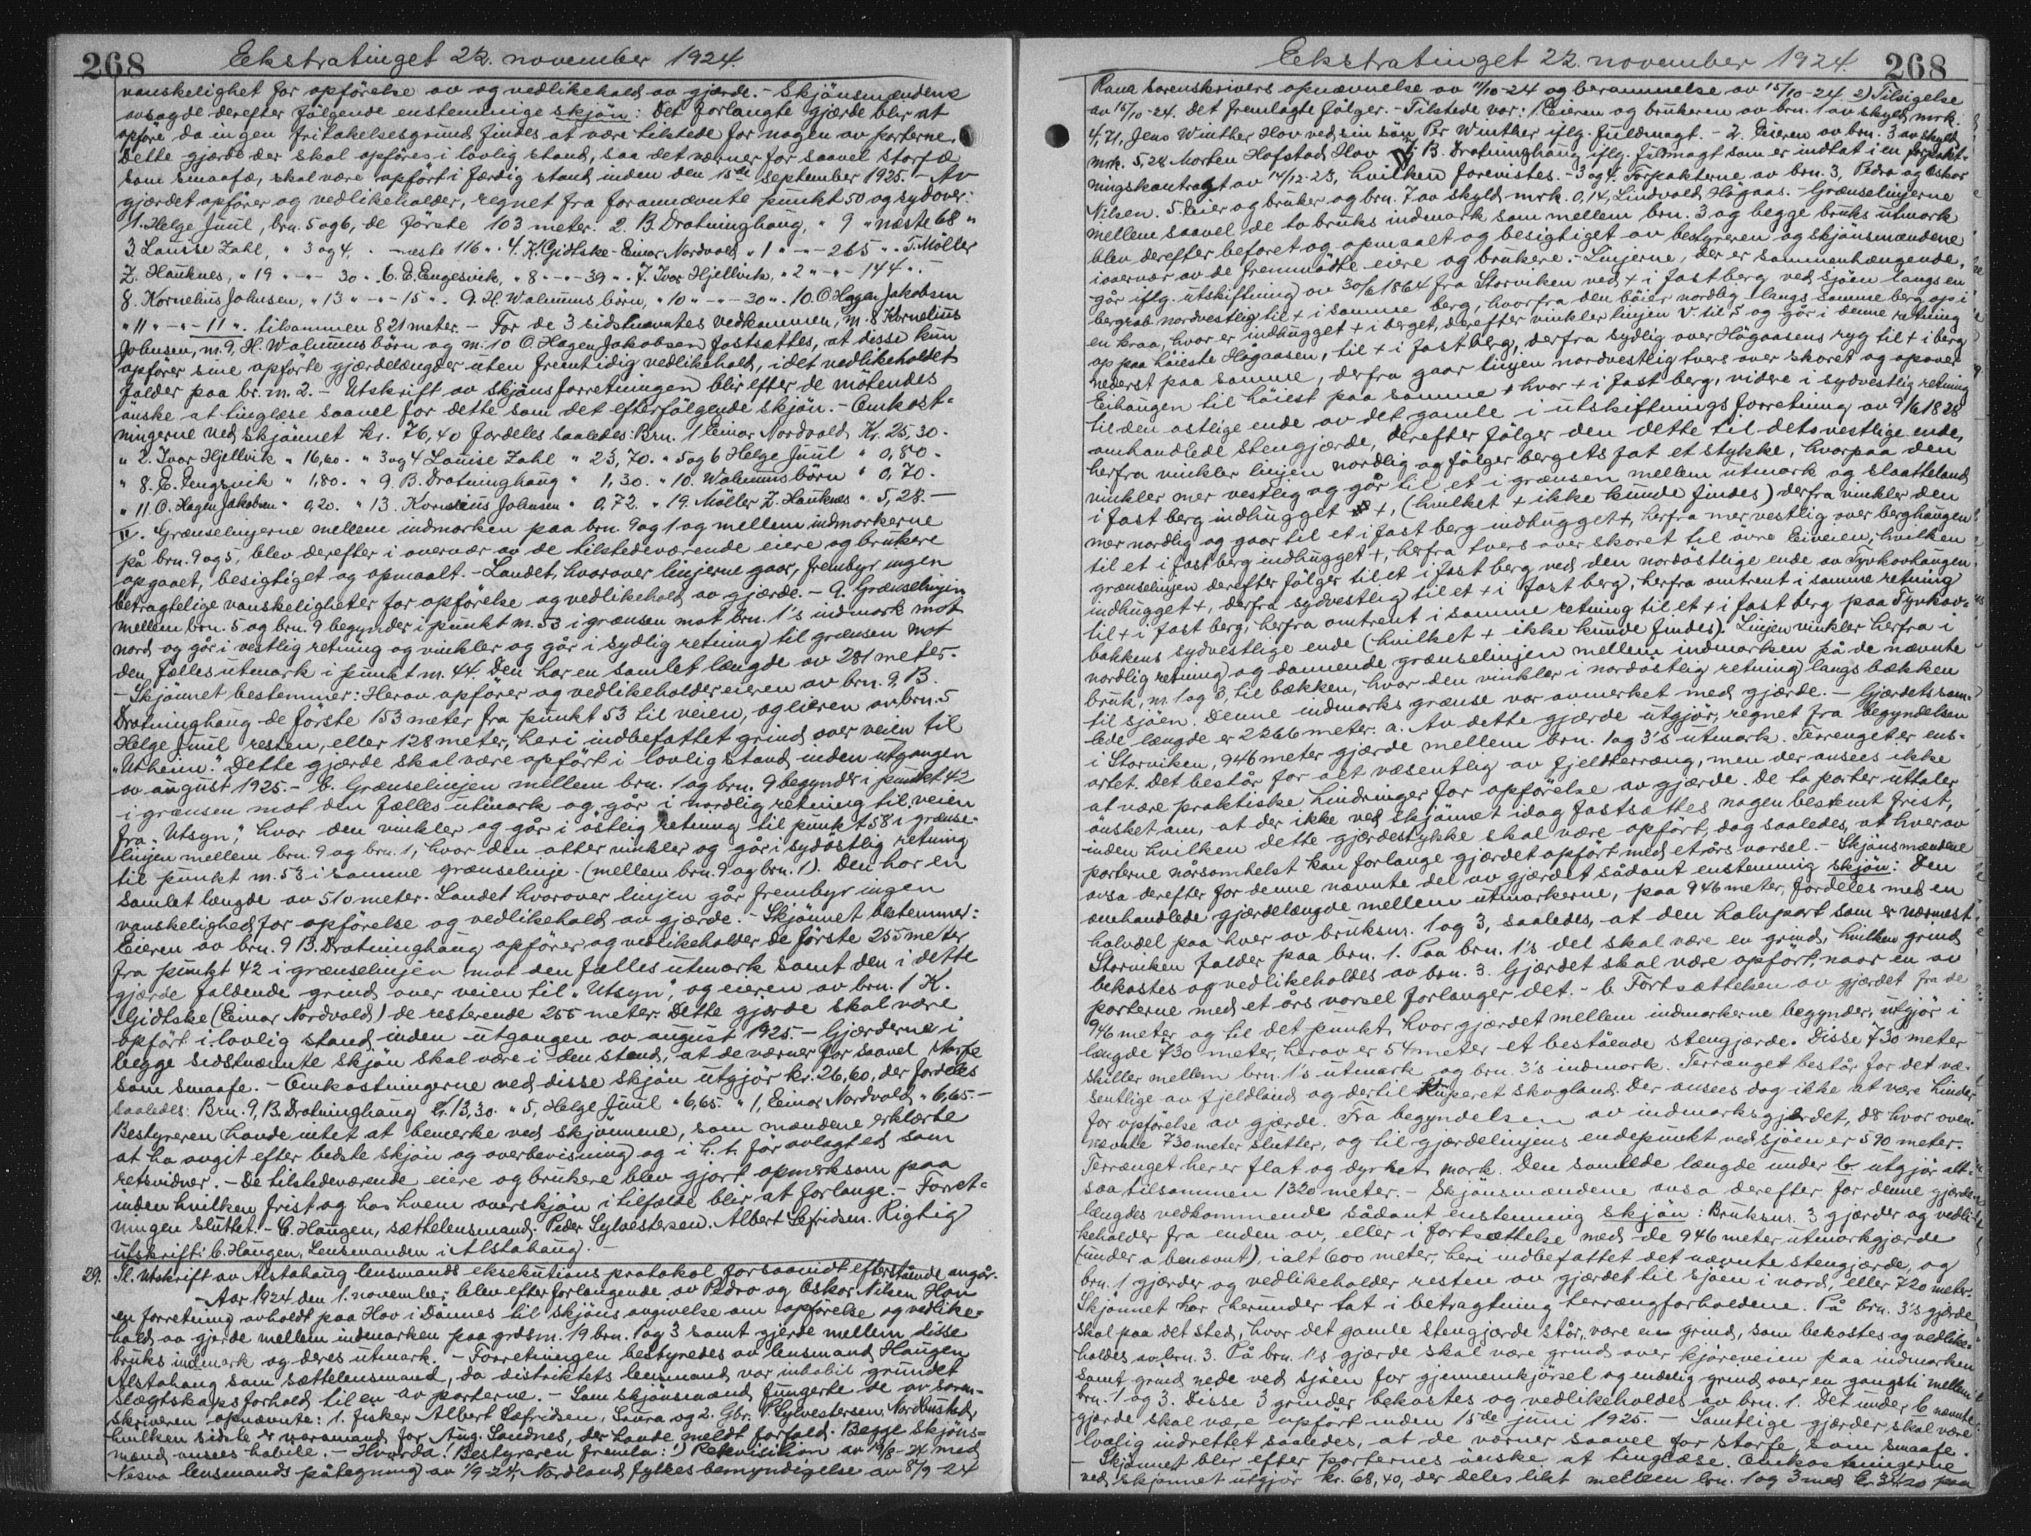 268
Ekstratinget 22. november 1924.
vanskelighet for opförelse av og vedlikehold av gjærde. - Skjönsmændene
avsagde derefter fölgende enstemmige skjön: Det forlangte gjærde blir at
opföre, da ingen fritakelsesgrund findes at være tilstede for nogen av parterne.
Dette gjærde der skal opföres i lovlig stand, saa det værner for saavel storfæ
som smaafæ, skal være opfört i færdig stand inden den 15de september 1925. - Av
gjærdet opförer og vedlikeholder, regnet fra forannævnte punkt 50 og sydover:
1. Helge Juul, brn. 5 og 6, de förste 103 meter. 2. B. Dratninghaug, " 9 " næste 68 "
3. Louise Zahl, " 3 og 4, - næste 116 ". 4. K. Gidtske - Einar Nordvold, " 1 " - " - 265 ". 5. Möller
Z. Hauknes, " 19 " - " - 30 ". 6. E. Engesvik, " 8 " - " - 39 ". 7. Ivar Hjellvik, " 2 " - " - 144 ". -
8. Kornelius Johnsen, " 13 " - " - 15 ". 9. H. Walnums börn, " 10 " - " - 30 ". 10. O. Hagen Jakobsen
" 11 " - " - 11 ". tilsammen 821 meter. - For de 3 sidstnævntes vedkommen, m. 8 Kornelius
Johnsen, m. 9, H. Walnums börn og m. 10 O. Hagen Jakobsen fastsættes, at disse kun
opförer sine opförte gjærdelængder uten fremtidig vedlikehold, idet vedlikeholdet
falder paa br. m. 2. - Utskrift av skjönsforretningen blir efter de mötendes
önske at tinglæse saavel for dette som det efterfölgende skjön. - Omkost-
ningerne ved skjönnet kr. 76,40 fordeles saaledes: Brn. 1 Einar Nordvold Kr. 25,30 -
" 2. Ivar Hjellvik " 16,60. " 3 og 4 Louise Zahl " 23,70. " 5 og 6 Helge Juul " 0,80 -
" 8. E. Engesvik " 1,80. " 9 B. Dratninghaug " 1,30. " 10. Walnums börn " 0,70 -
" 11 O. Hagen Jakobsen " 0,20. " 13. Kornelius Johnsen " 0,72. " 19. Möller Z. Hauknes " 5,28. -
II. Grænselinjerne mellem indmarken paa brn. 9 og 1 og mellem indmarkerne
på brn. 9 og 5, blev derefter i overvær av de tilstedeværende eiere og brukere
opgaaet, besigtiget og opmaalt. - Landet, hvorover linjerne gaar, frembyr ingen
betragtelige vanskeligheter for opförelse og vedlikehold av gjærde. - a. Grænselinjen
mellem brn. 5 og brn. 9 begynder i punkt m. 53 i grænsen mot brn. 1's indmark mot
nord og går i vestlig retning og vinkler og går i sydlig retning til grænsen mot
den fælles utmark i punkt m. 44. Den har en samlet længde av 281 meter.
- Skjönnet bestemmer: Herav opförer og vedlikeholder eieren av brn. 9, B.
Dratninghaug de förste 153 meter fra punkt 53 til veien, og eieren av brn. 5
Helge Juul resten, eller 128 meter, heri indbefattet grind over veien til
"Utheim". Dette gjærde skal være opfört i lovlig stand inden utgangen
av august 1925. - b. Grænselinjen mellem brn. 1 og brn. 9 begynder i punkt 42
i grænsen mot den fælles utmark og går i nordlig retning til veien
fra "Utsyn", hvor den vinkler og går i östlig retning til punkt 58 i grænse-
linjen mellem brn. 9 og brn. 1, hvor den atter vinkler og går i sydöstlig retning
til punkt m. 53 i samme grænselinje (mellem brn. 9 og brn. 1). Den har en
samlet længde av 510 meter. Landet hvorover linjen går frembyr ingen
vanskelighed for opförelse og vedlikehold av gjærde. - Skjönnet bestemmer:
Eieren av brn. 9 B. Dratninghaug opförer og vedlikeholder de förste 255 meter
fra punkt 42 i grænselinjen mot den fælles utmark samt den i dette
gjærde faldende grind over veien til "Utsyn", og eieren av brn. 1 K.
Gidtske (Einar Nordvold) de resterende 255 meter. Dette gjærde skal være
opfört i lovlig stand inden utgangen av august 1925. - Gjærderne i
begge sidstnævnte skjön skal være i den stand, at de værner for saavel storfæ
som smaafæ. - Omkostningerne ved disse skjön utgjör kr. 26,60, der fordeles
saaledes: Brn. 9, B. Dratninghaug kr. 13,30. " 5, Helge Juul " 6,65. " 1, Einar Nordvold " 6,65. -
Bestyreren havde intet at bemerke ved skjönnene, som mændene erklærte
at ha avgit efter bedste skjön og overbevisning og i h. t. för avlagt ed som
retsvidner. - De tilstedeværende eiere og brukere blev gjort opmerksom paa
inden hvilken frist og hos hvem overskjön i tilfælde blir at forlange. - Forret-
ningen sluttet. - C. Haugen, sættelensmand. Peder Sylvestersen. Albert Sefridsen. Rigtig
utskrift: C. Haugen, Lensmanden i Alstahaug. -
29. Tl. Utskrift av Alstahaug lensmands eksekutions protokol forsaavidt efterstående angår.
- Aar 1924 den 1. november, blev efter forlangende av Pedro og Oskar Nilsen Hov
en forretning avholdt paa Hov i Dönnes til skjöns avgivelse om opförelse og vedlike-
hold av gjærde mellem indmarken paa grdsm. 19 brn. 1 og 3 samt gjerde mellem disse
bruks indmark og deres utmark. - Forretningen bestyredes av lensmand Haugen
Alstahaug som sættelensmand, da distriktets lensmand var inhabil grundet
slægtskapsforhold til en av parterne. - Som skjönsmænd fungerte de av soren-
skriveren opnævnte: 1. fisker Albert Sefridsen, Saura og 2. Gbr. P. Sylvestersen Nordbustad,
hvilken sidste er varamand for Aug. Sandnes, der havde meldt forfald. Begge skjöns-
mænd ansees habile. - Hvorda! Bestyreren fremla: 1) Rekvisition av 19/8-24 med
Nesna lensmands påtegning av 1/9-24, Nordland fylkes bemyndigelse av 8/9-24
268
Ekstratinget 22. november 1924.
Rana sorenskrivers opnævnelse av 11/10-24 og berammelse av 15/10-24. 2) Tilsigelse
av 15/10-24. det fremlagte fölger. - Tilstede var: 1. Eieren og brukeren av brn. 1 av skyld mrk.
4,71, Jens Winther Hov ved sin sön Per Winther iflg. fuldmagt. - 2. Eieren av brn. 3 av skyld
mrk. 5,24 Morten Hofstad Hov v. B. Dratninghaug iflg. fuldmagt som er indtat i en forpakt-
ningskontrakt av 14/12-23, hvilken forevistes. - 3 og 4. Forpakterne av brn. 3, Pedro og Oskar
Nilsen. 5. Eier og bruker og brn. 7 av skyld mrk. 0,14, Lindvald Högaas. - Grænselinjerne
mellem saavel de to bruks indmark som mellem brn. 3 og begge bruks utmark
blev derefter befaret og opmaalt og besigtiget av bestyreren og skjönsmændene
i overvær av de fremmötte eiere og brukere. - Linjerne, der er sammenhængende,
går iflg. utskiftning av 30/6 1864 fra Storviken ved + i fastberg ved sjöen langs en
bergrab nordvestlig til + i samme berg, hvorfra den böier nordlig langs samme berg op i
en kraa, hvor er indhugget + i berget, derefter vinkler linjen V. til S og går i denne retning
op paa höieste Högaasen, til + i fastberg, derfra sydlig over Högaasens ryg til + i berg
nederst paa samme, derfra gaar linjen nordvestlig tvers over skoret og opover
Eihaugen til höiest paa samme, hvor + i fast berg, videre i sydvestlig retning
til den östlige ende av det gamle i utskiftningsforretning av 9/6 1828
omhandlede stengjærde, derefter fölger den dette til dets vestlige ende,
herfra vinkler linjen nordlig og fölger bergets fot et stykke, hvorpaa den
vinkler mer vestlig og går til et i grænsen mellem utmark og slaatteland
i fast berg indhugget +, (hvilket + ikke kunde findes) derfra vinkler den
mer nordlig og gaar til et i fast berg indhugget +, herfra mer vestlig over berghaugen
til et i fast berg indhugget +, herfra tvers over skoret til övre Eiveien, hvilken
grænselinjen derefter fölger til et i fast berg ved den nordöstlige ende av Tyvkovhaugen
indhugget +, derfra sydvestlig til et + i fast berg, herfra omtrent i samme retning
til + i fast berg, herfra omtrent i samme retning til et + i fast berg paa Tyvkov-
bakkens sydvestlige ende (hvilket + ikke kunde findes). Linjen vinkler herfra i
nordlig retning og dannende grænselinjen mellem indmarken på de nævnte
bruk, m. 1 og 3, til bækken, hvor den vinkler i nordöstlig retning langs bækken
til sjöen. Denne indmarks grænse var avmerket med gjærde. - Gjærdets sam-
lede længde er 2266 meter. a. Av dette gjærde utgjör, regnet fra begyndelsen
i Storviken, 946 meter gjærde mellem brn. 1 og 3's utmark. Terrænget er ens-
artet. Det består for alt væsentlig av fjeldterræng, men der ansees ikke
at være praktiske hindringer for opförelse av gjærde. De to parter uttaler
önsket om, at der ikke ved skjönnet idag fastsættes nogen bestemt frist,
inden hvilken dette gjærdestykke skal være opfört, dog saaledes, at hver av
parterne nårsomhelst kan forlange gjærdet opfört med et års varsel. - Skjönsmændene
avsa derefter for denne nævnte del av gjærdet sådant enstemmig skjön: Den
omhandlede gjærdelængde mellem utmarkerne, paa 946 meter, fordeles med en
halvdel paa hver av bruksnr. 1 og 3, saaledes, at den halvpart som er nærmest
Storviken falder paa brn. 1. Paa brn. 1's del skal være en grind, hvilken grind
bekostes og vedlikeholdes av brn. 3. Gjærdet skal være opfört, naar en av
parterne med et års varsel forlanger det. - b. Fortsættelsen av gjærdet fra de
946 meter og til det punkt, hvor gjærdet mellem indmarkerne begynder, utgjör i
længde 730 meter, herav er 54 meter et bestående stengjærde. Disse 730 meter
skiller mellem brn. 1's utmark og brn. 3's indmark. Terrænget består for det væ-
sentlige av fjeldland og dertil kuperet skogland. Der ansees dog ikke at være hinder
for opförelse av gjærde. Fra begyndelsen av indmarksgjærdet, dr hvor oven-
nævnte 730 meter slutter, og til gjærdelinjens endepunkt ved sjöen er 590 meter.
Terrænget her er flat og dyrket mark. Den samlede længde under b. utgjör alt-
saa tilsammen 1320 meter. - Skjönsmændene avsa derefter for denne gjærde-
længdes vedkommende sådant enstemmig skjön: Bruksnr. 3 gjærder og vedli-
keholder fra enden av, eller i fortsættelse med de 946 meter utmarkgjærde
(under a benævnt), i alt 600 meter, heri indbefattet det nævnte stengjærde, og
brn. 1 gjærder og vedlikeholder resten av gjærdet til sjöen i nord, eller 720 meter.
Skjönnet har herunder tat i betragtning terrængforholdene. På brn. 3's gjærde
skal paa det sted, hvor det gamle stengjærde står, være en grind, som bekostes og vedlike-
holdes av brn. 3. På brn. 1's gjærde skal være grind over kjöreveien paa indmarken
samt grind nede ved sjöen for gjennemkjörsel og endelig grind over en gangsti mellem
brn. 1 og 3. Disse 3 grinder bekostes og vedlikeholdes av brn. 1. Det under b nævnte
gjærde skal være opfört inden 15de juni 1925. - Samtlige gjærder skal være
lovlig indrettet saaledes, at de værner saavel for storfe som smaafe.
- Skjönnet blir efter parternes önske at tinglæse. Omkostningerne
ved skjönnet utgjör kr. 68,40, der deles likt mellem brn. 1 og 3 med kr. 34.20 paa